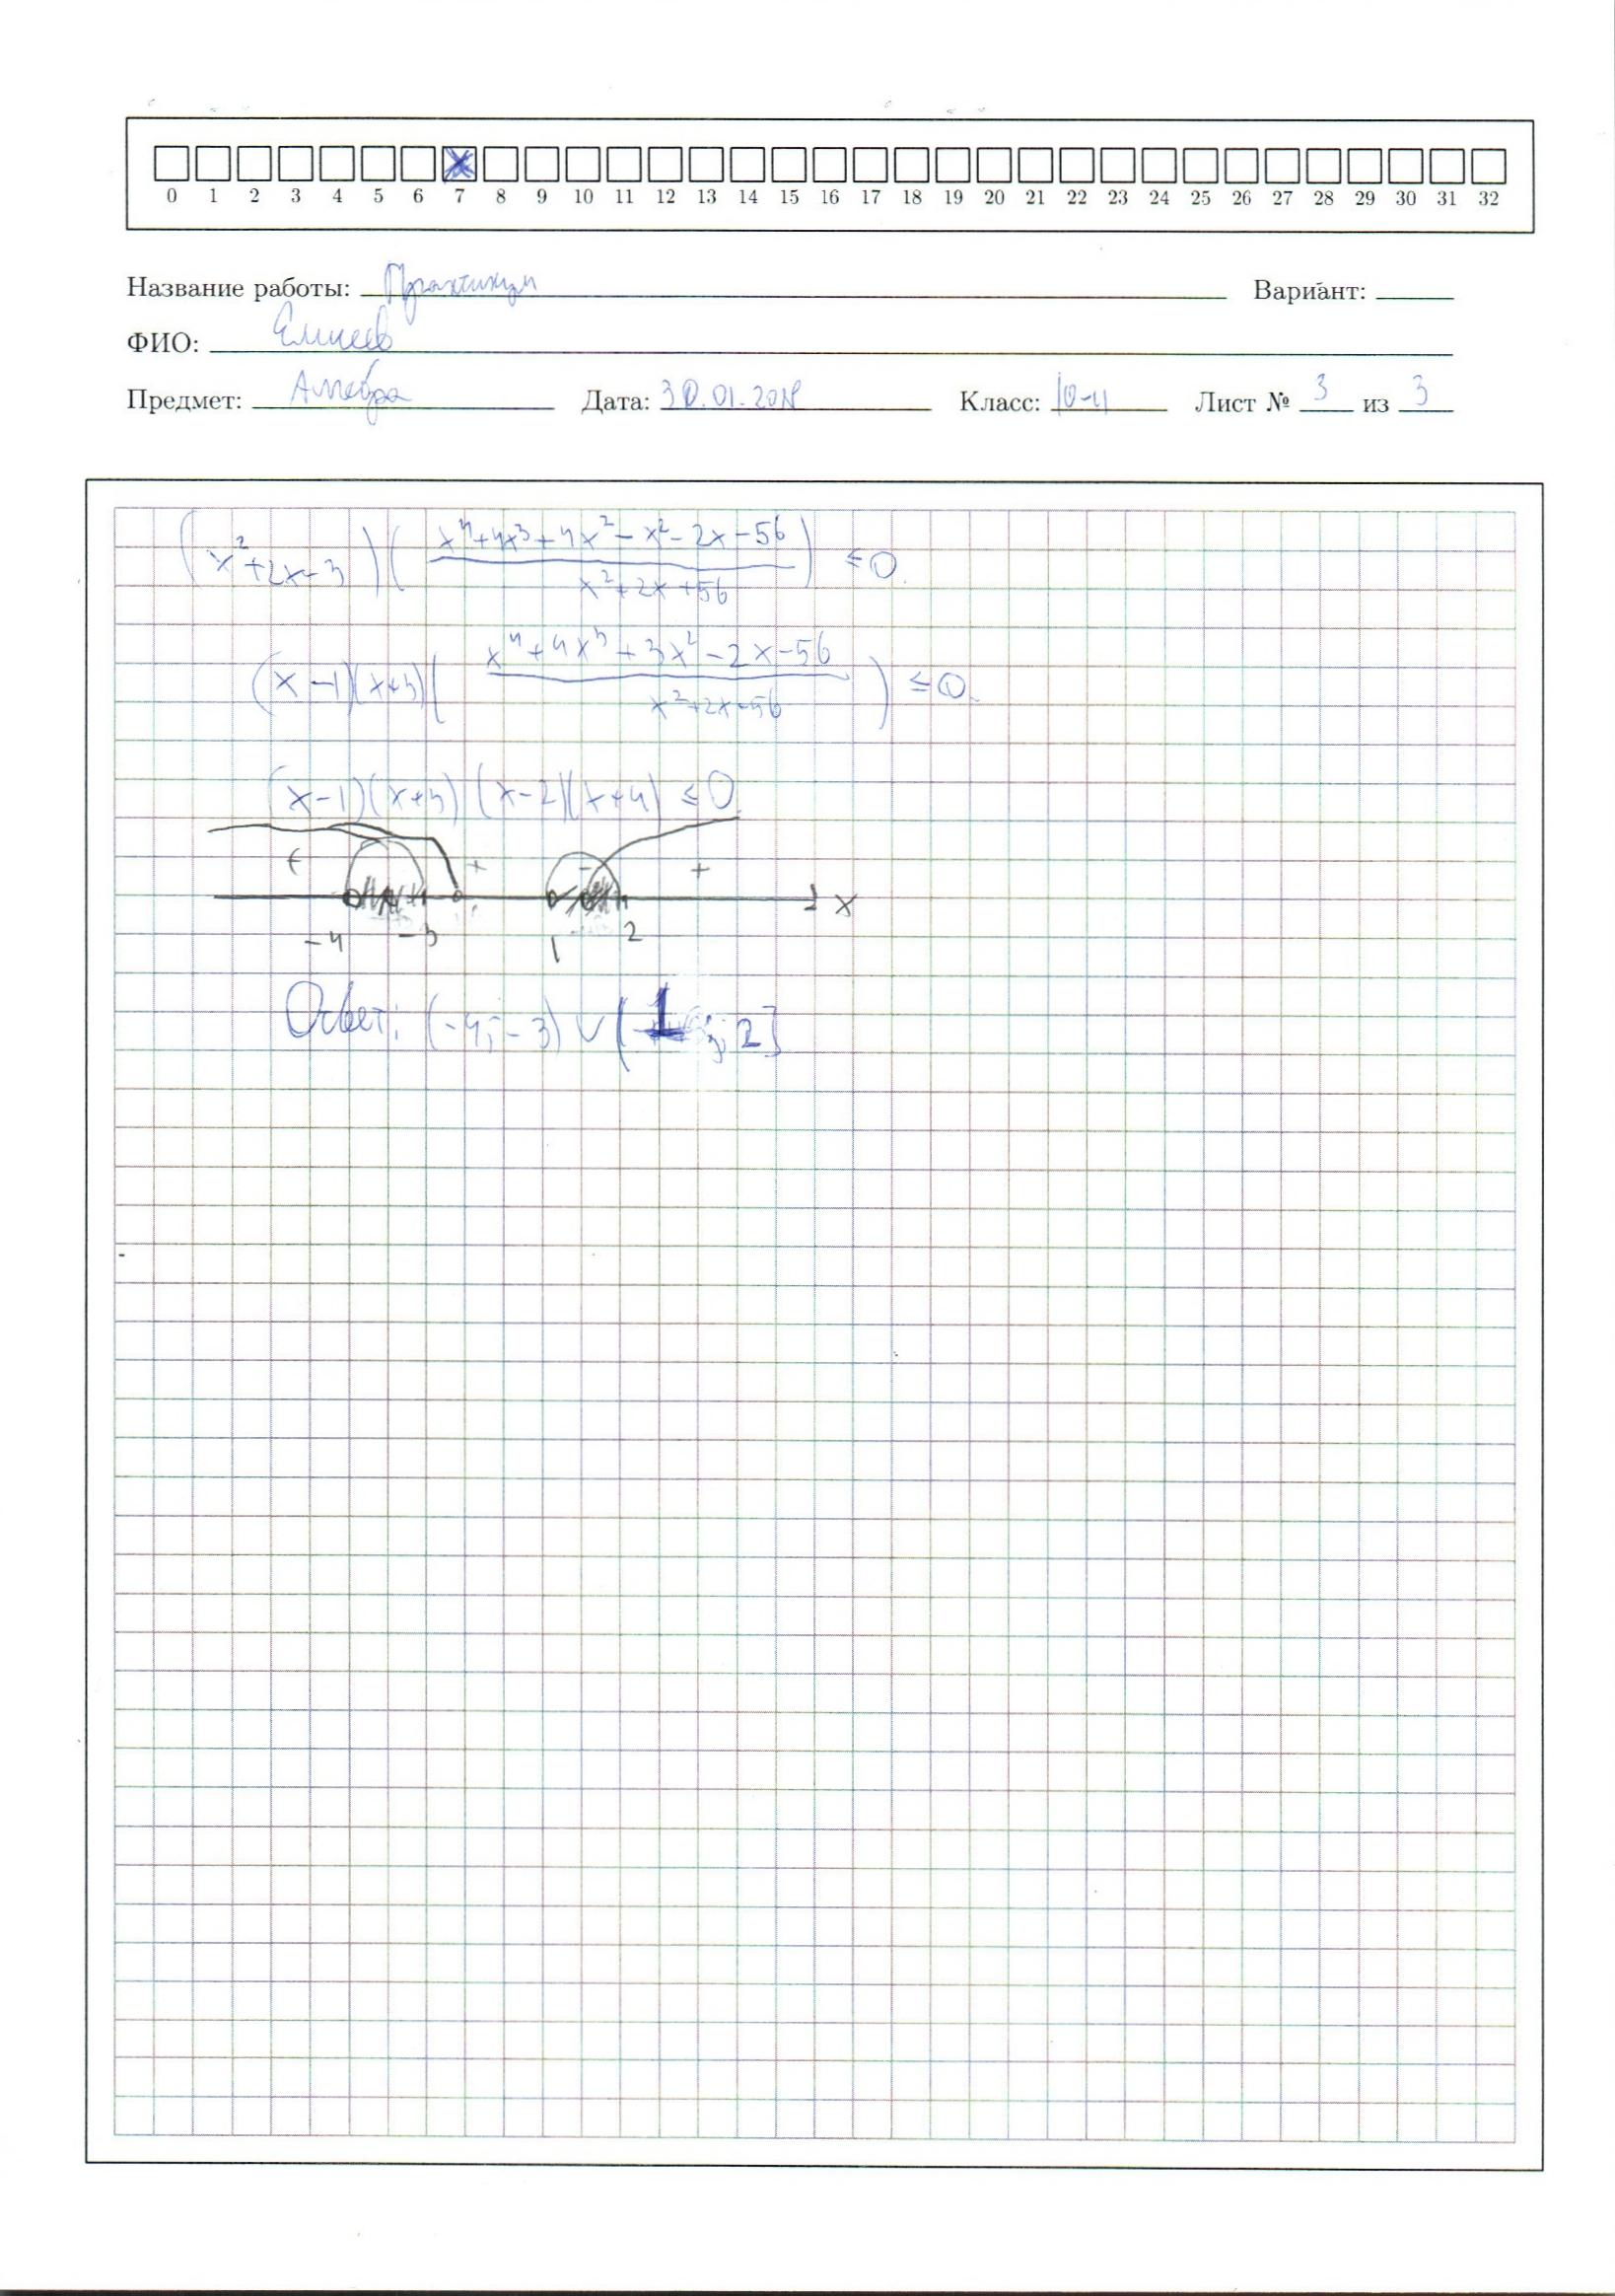 0 1 2 3 4 5 6 7 8 9 10 11 12 13 14 15 16 17 18 19 20 21 22 23 24 25 26 27 28 29 30 31 32
Название работы: Практикум Вариант:
ФИО: Елисеев
Предмет: Алгебра Дата: 30.01.2018 Класс: 10-11 Лист № 3 из 3
(x²+2x-3)((x⁴+4x³+4x²-x²-2x-56)/(x²+2x+56)) ≤0
(x-1)(x+3)((x⁴+4x³+3x²-2x-56)/(x²+2x-56)) ≤0
(x-1)(x+3)(x-2)(x+4) ≤0
+ + - + x
-4 -3 1 2
Ответ: (-4;-3) ∪ (1; 2]